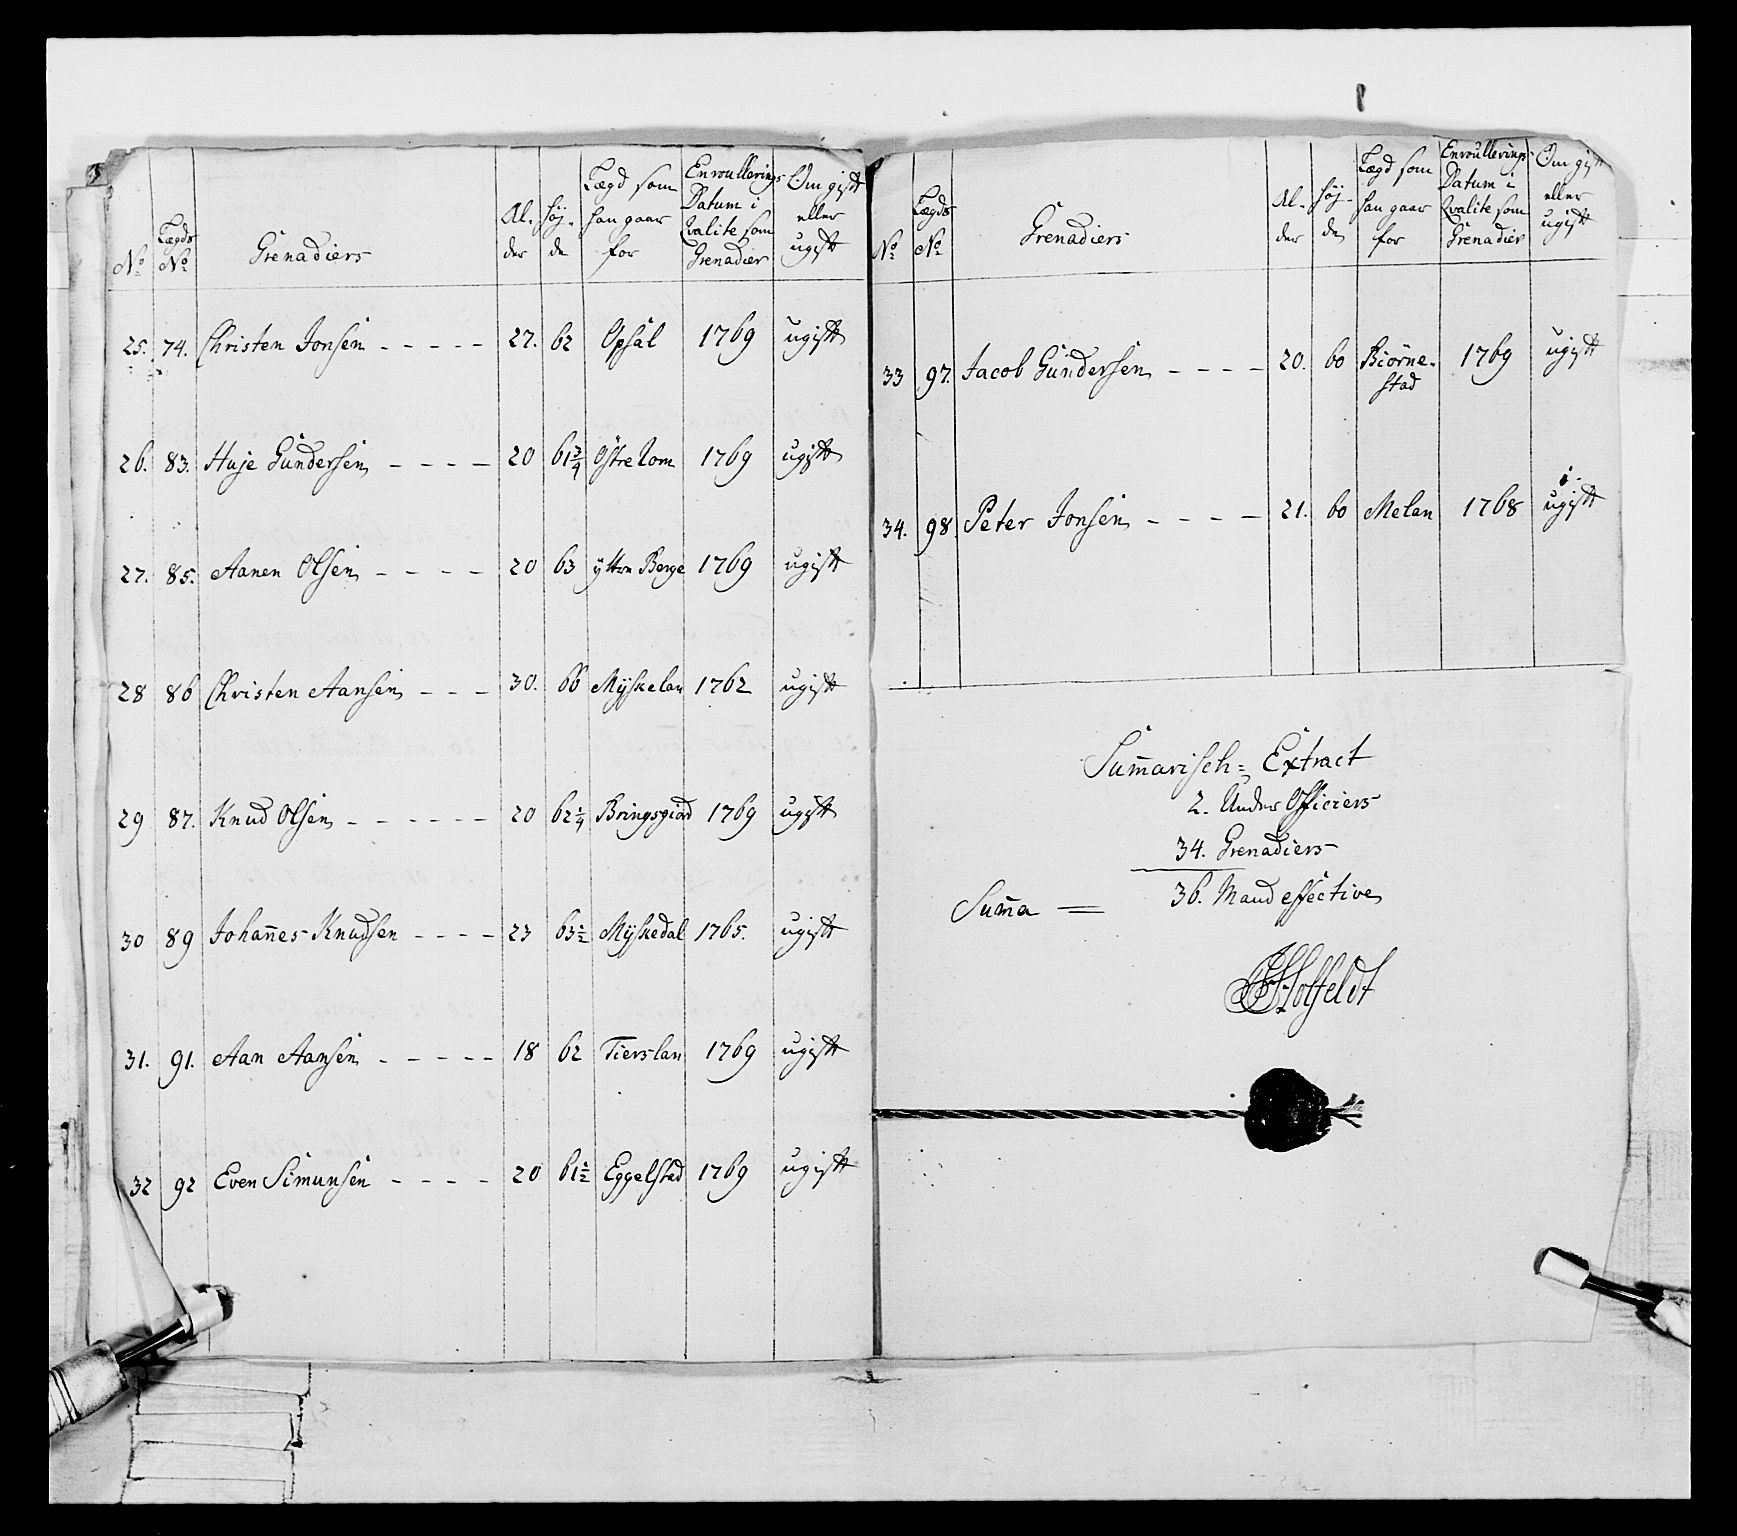 No | Lægds No | Grenadiers | Al-der | Høj-de | Lægd som han gaar for | Enroullerings Datum i Qvalite som Grenadier | Om gift eller ugift
25. | 74. | Christen Jonsen - - - - - | 27. | 62 | Opsal | 1769 | ugift
26. | 83. | Huje Gundersen - - - - | 20 | 61 3/4 | Østre Lom | 1769 | ugift
27. | 85. | Aanen Olsen - - - - | 20 | 63 | yttre Berge | 1769 | ugift
28 | 86 | Christen Aansen - - - | 30. | 66 | Myskelan | 1762 | ugift
29 | 87. | Knud Olsen - - - - - - | 20 | 62 1/4 | Bringsgiord | 1769 | ugift
30 | 89 | Johan̄es Knudsen - - - - | 23 | 63 1/2 | Myskedal | 1765. | ugift
31. | 91. | Aan Aansen - - - - - | 18 | 62 | Tierslan | 1769 | ugift
32 | 92 | Even Simunsen - - - - | 20 | 61 1/2 | Eggelstad | 1769 | ugift
No | Lægds No | Grenadiers | Al-der | Høj-de | Lægd som han gaar for | Enroullerings Datum i Qvalite som Grenadier | Om gift eller ugift
33 | 97. | Jacob Gundersen - - - - | 20. | 60 | Biørne-stad | 1769 | ugift
34. | 98. | Peter Jonsen - - - - | 21. | 60 | Melan | 1768 | ugift
Sum̄arisch= Extract
2. Under Officiers
34. Grenadiers
Sum̄a = 36. Mand effective
Holfeldt